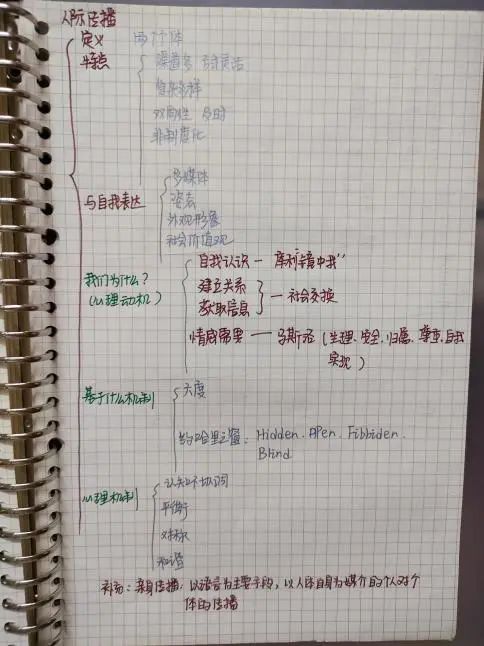 人际传播
定义 两个体
特点 渠道多 方法灵活
信息多样
双向性 及时
非制度化
与自我表达 多媒体
姿态
外观形象
社会价值观
我们为什么?
(心理动机)
自我认识 — 库利"镜中我"
建立关系
获取信息 — 社会交换
情感需要 — 马斯洛 (生理、安全、归属、尊重、自我
实现)
基于什么机制 六度
约哈里之窗: Hidden. APen. Fibbiden.
Blind
心理机制 认知不协调
平衡
对称
和谐
补充: 亲身传播: 以语言为主要手段, 以人体自身为媒介的个人对个
体的传播